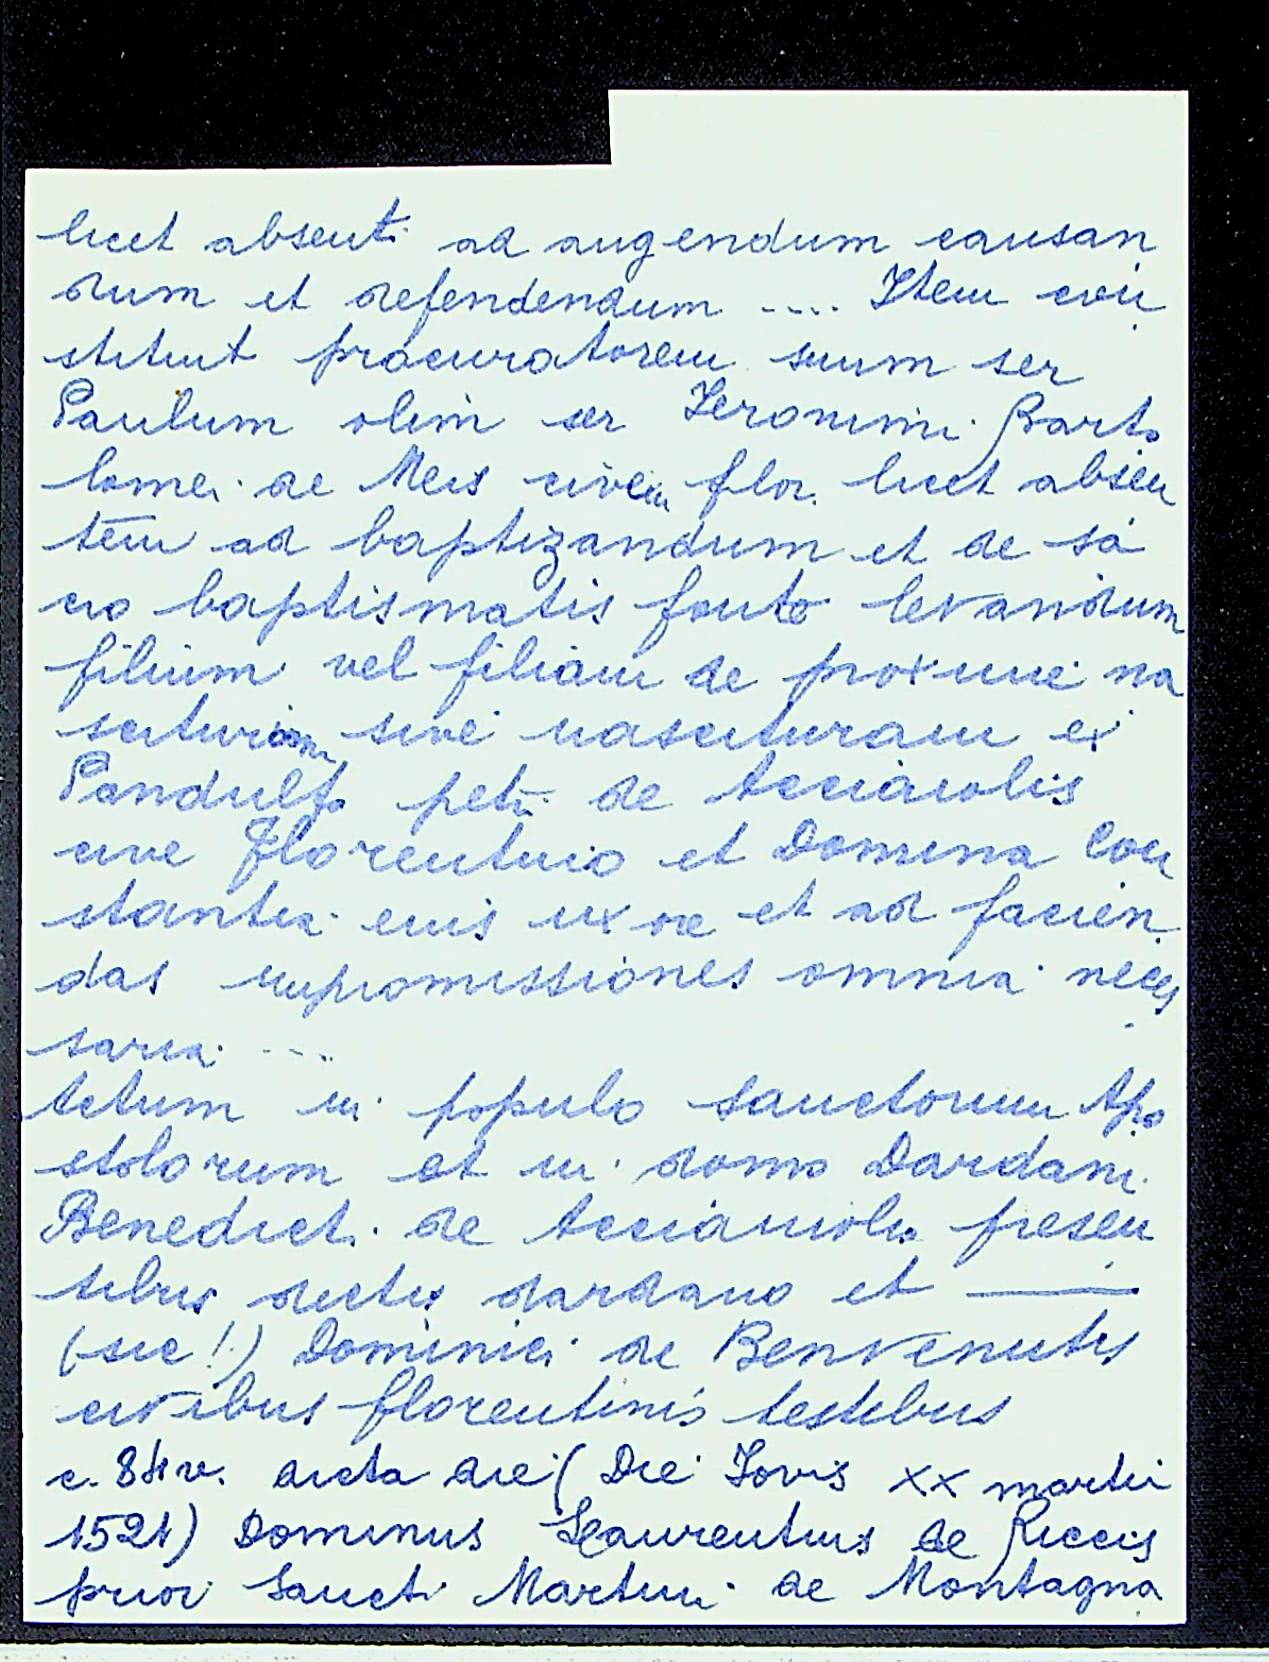 licet absenti ad augendum causan
dum et defendendum .... Item con
stituit procuratorem suum ser
Paulum olim ser Jeronimi Barto
lomei de Meis civem flor. licet absen
tem ad baptizandum et de sa
cro baptismatis fonte levandum
filium vel filiam de proxime na
sciturum sive nascituram ex
Pandulfo petri de Acciaiolis
cive Florentino et Domina Con
stantia eius uxore et ad facien
das repromissiones omnia neces
saria ....
Actum in populo Sanctorum Apo
stolorum et in domo Dardani
Benedicti de Acciaiuolis presen
tibus dictis dardano et ———
(sic!) Dominici de Benvenutis
civibus florentinis testibus
c. 84v. dicta die (Die Jovis XX martii
1521) Dominus Laurentius de Riccis
prior Sancti Martini de Montagna